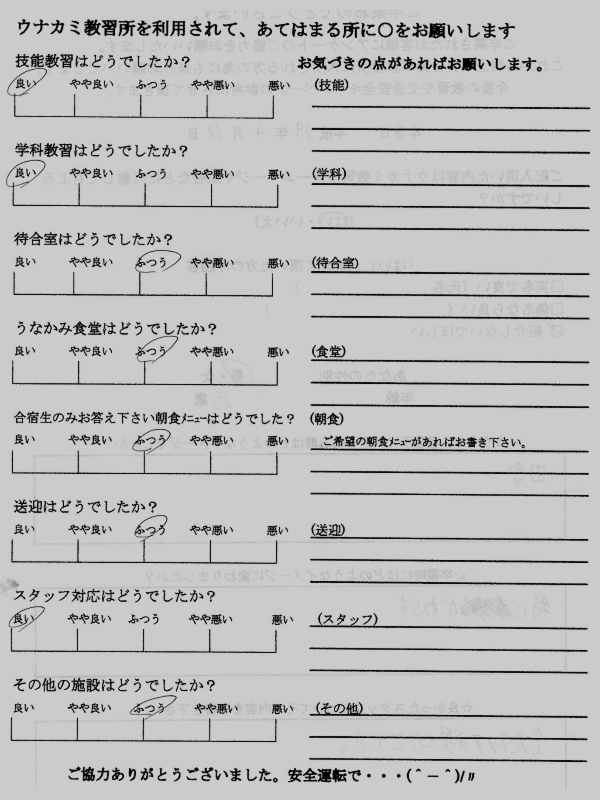 ウナカミ教習所を利用されて、あてはまる所に〇をお願いします
技能教習はどうでしたか？
お気づきの点があればお願いします。
良い やや良い ふつう やや悪い 悪い
(技能)
学科教習はどうでしたか？
良い やや良い ふつう やや悪い 悪い
(学科)
待合室はどうでしたか？
良い やや良い ふつう やや悪い 悪い
(待合室)
うなかみ食堂はどうでしたか？
良い やや良い ふつう やや悪い 悪い
(食堂)
合宿生のみお答え下さい朝食ﾒﾆｭｰはどうでしたか？
(朝食)
良い やや良い ふつう やや悪い 悪い
ご希望の朝食ﾒﾆｭｰがあればお書き下さい。
送迎はどうでしたか？
良い やや良い ふつう やや悪い 悪い
(送迎)
スタッフ対応はどうでしたか？
良い やや良い ふつう やや悪い 悪い
(スタッフ)
その他の施設はどうでしたか？
良い やや良い ふつう やや悪い 悪い
(その他)
ご協力ありがとうございました。安全運転で・・・(＾－＾)/〃